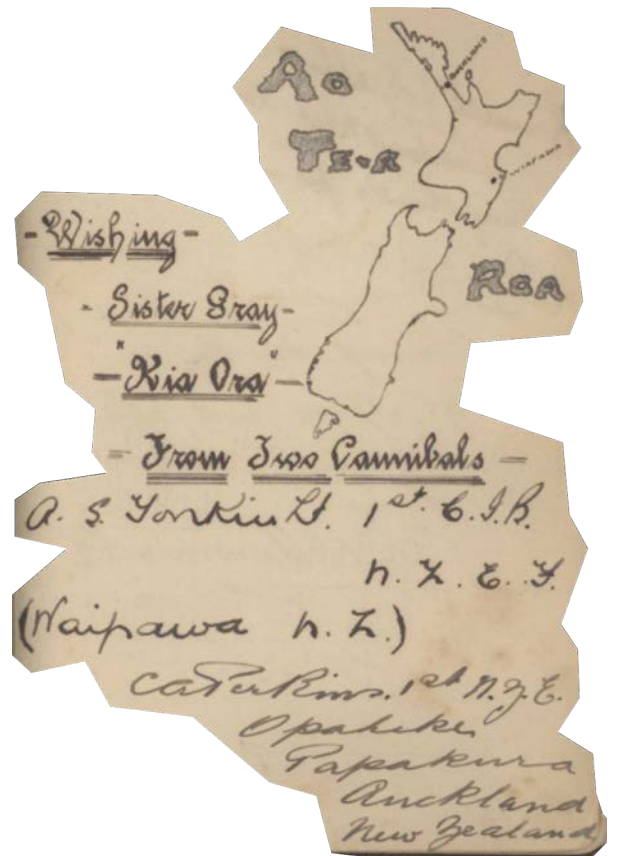 Ao
AUCKLAND
Te-a
WAIPAWA
- Wishing -
Roa
- Sister Gray -
- "Kia Ora" -
- From Two Cannibals -
A. S. Tonkin Lt. 1st. C.I.B.
N. Z. E. F.
(Waipawa N. Z.)
CA Perkins. 1st N.Z.E.
Opaheke
Papakura
Auckland
New Zealand